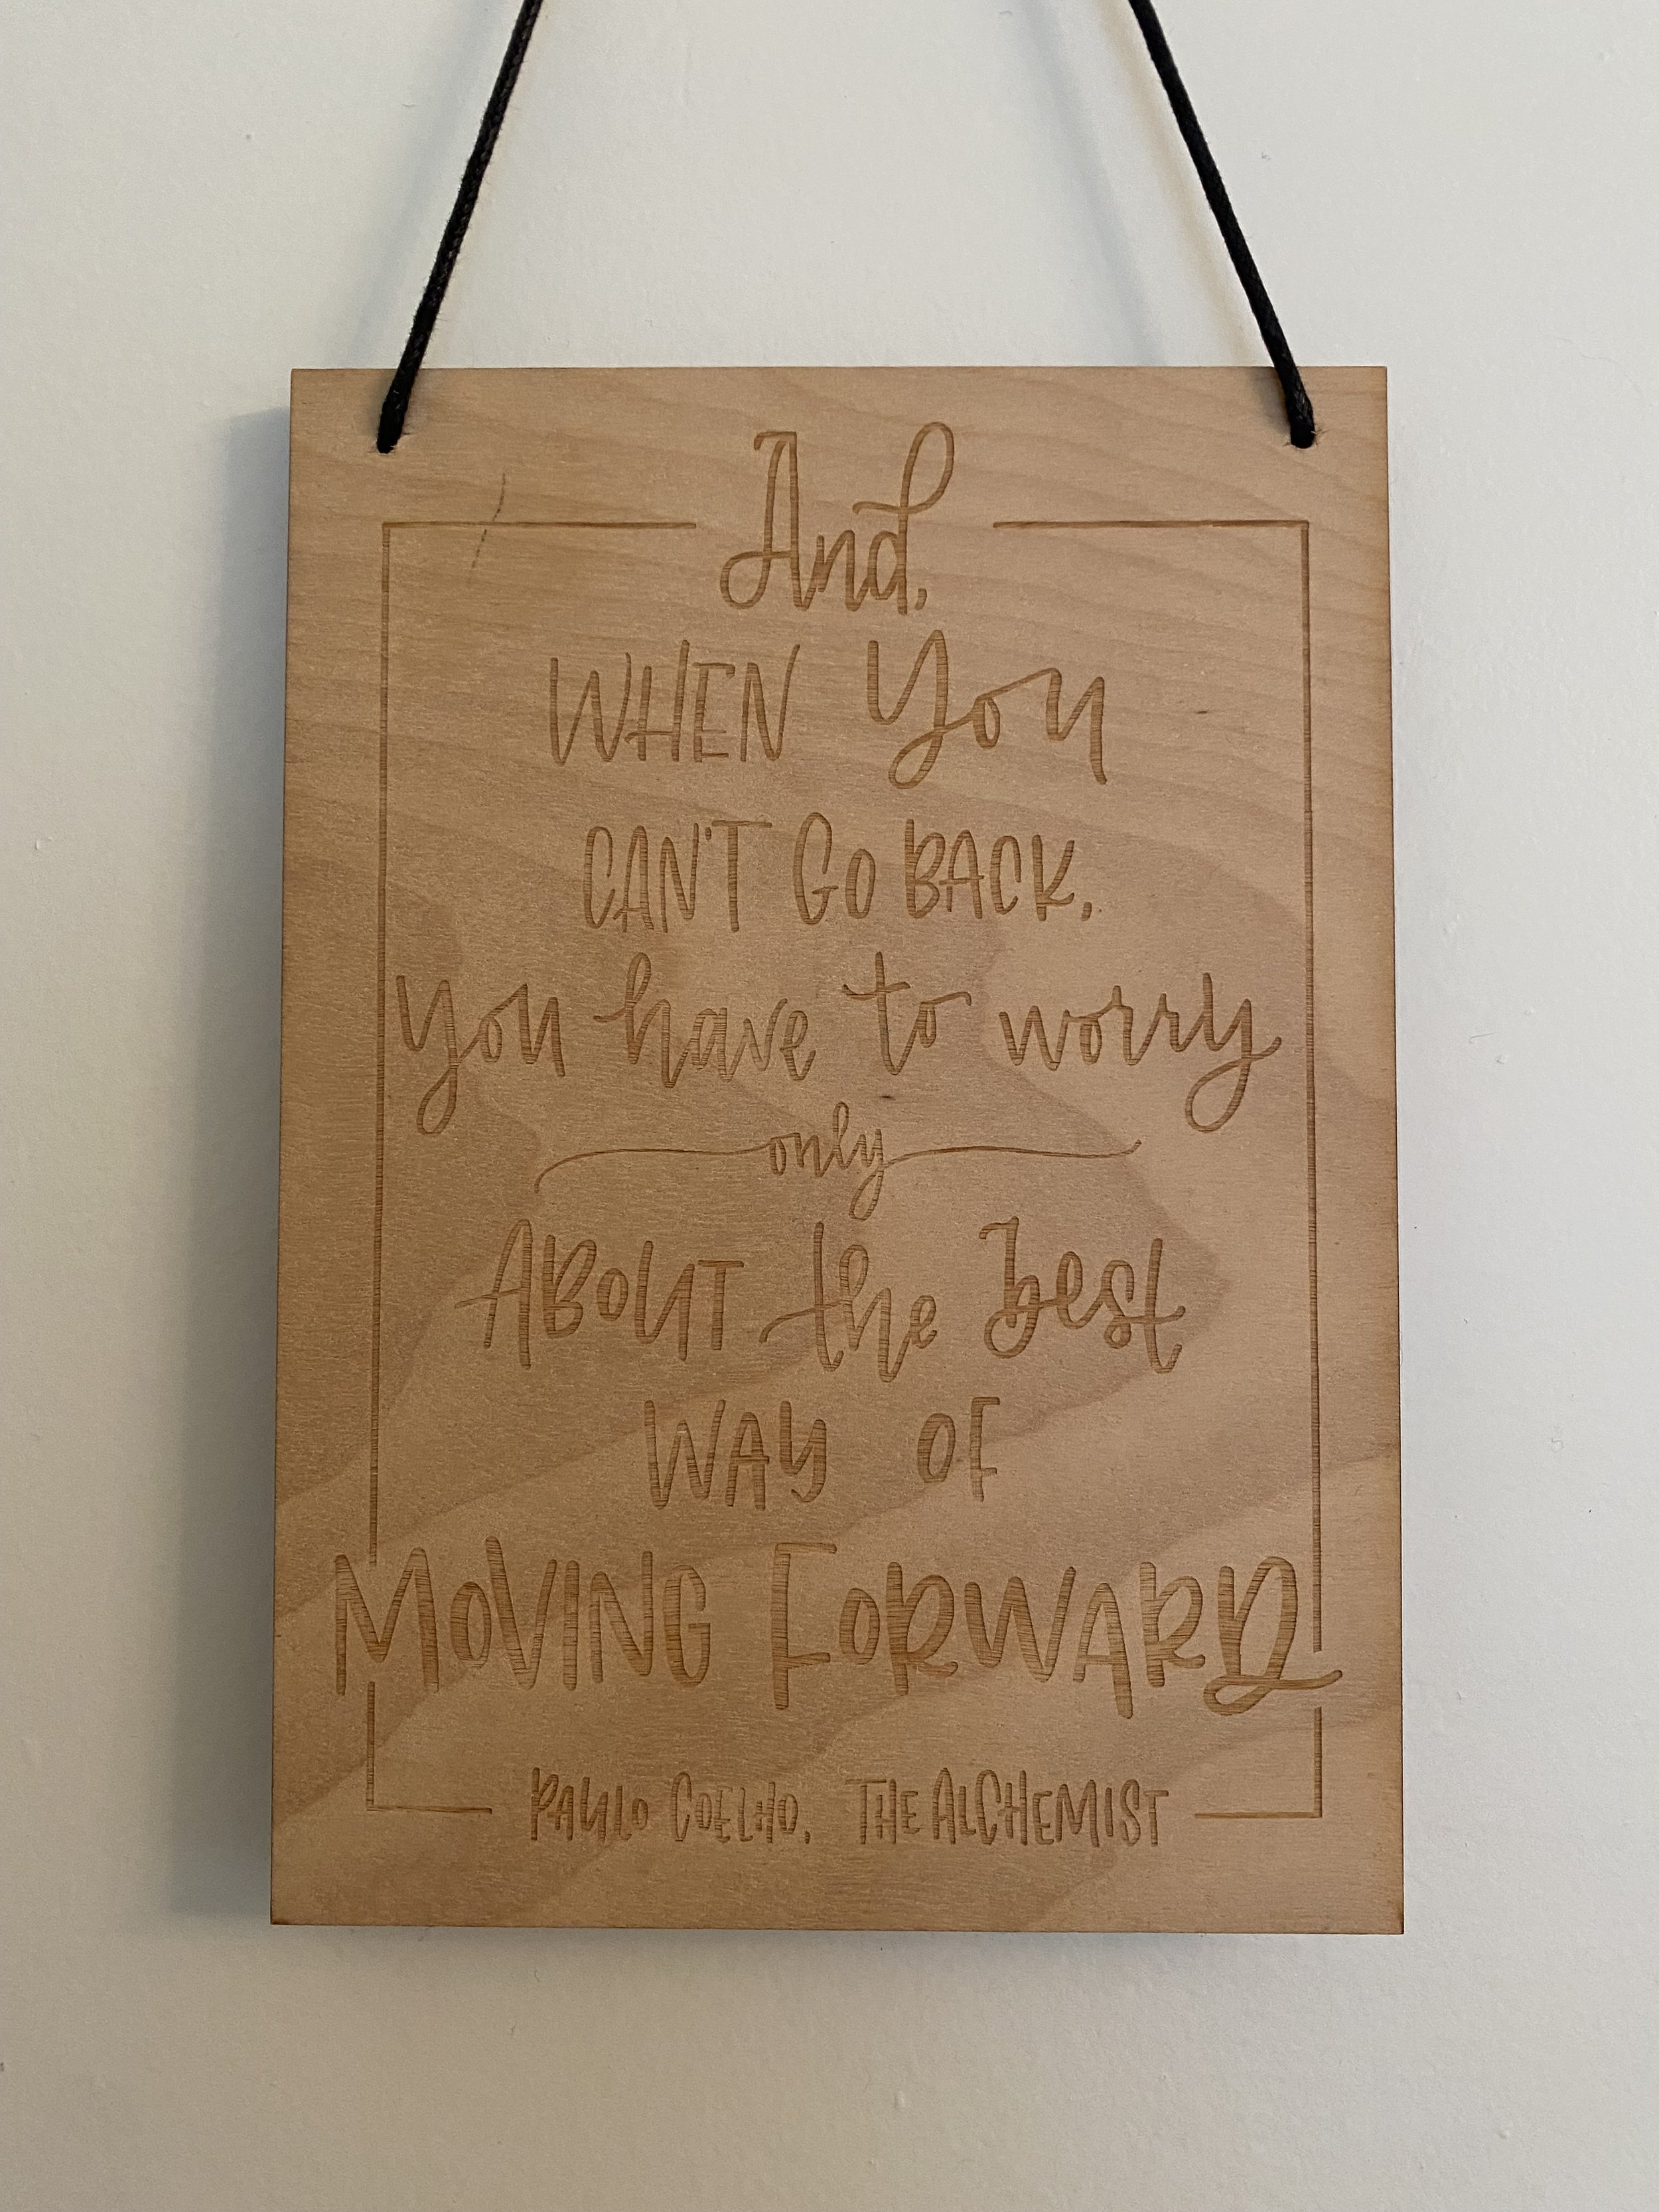 And,
WHEN You
CAN'T GO BACK,
you have to worry
only
ABOUT the best
WAY OF
MOVING FORWARD
PAULO COELHO, THE ALCHEMIST